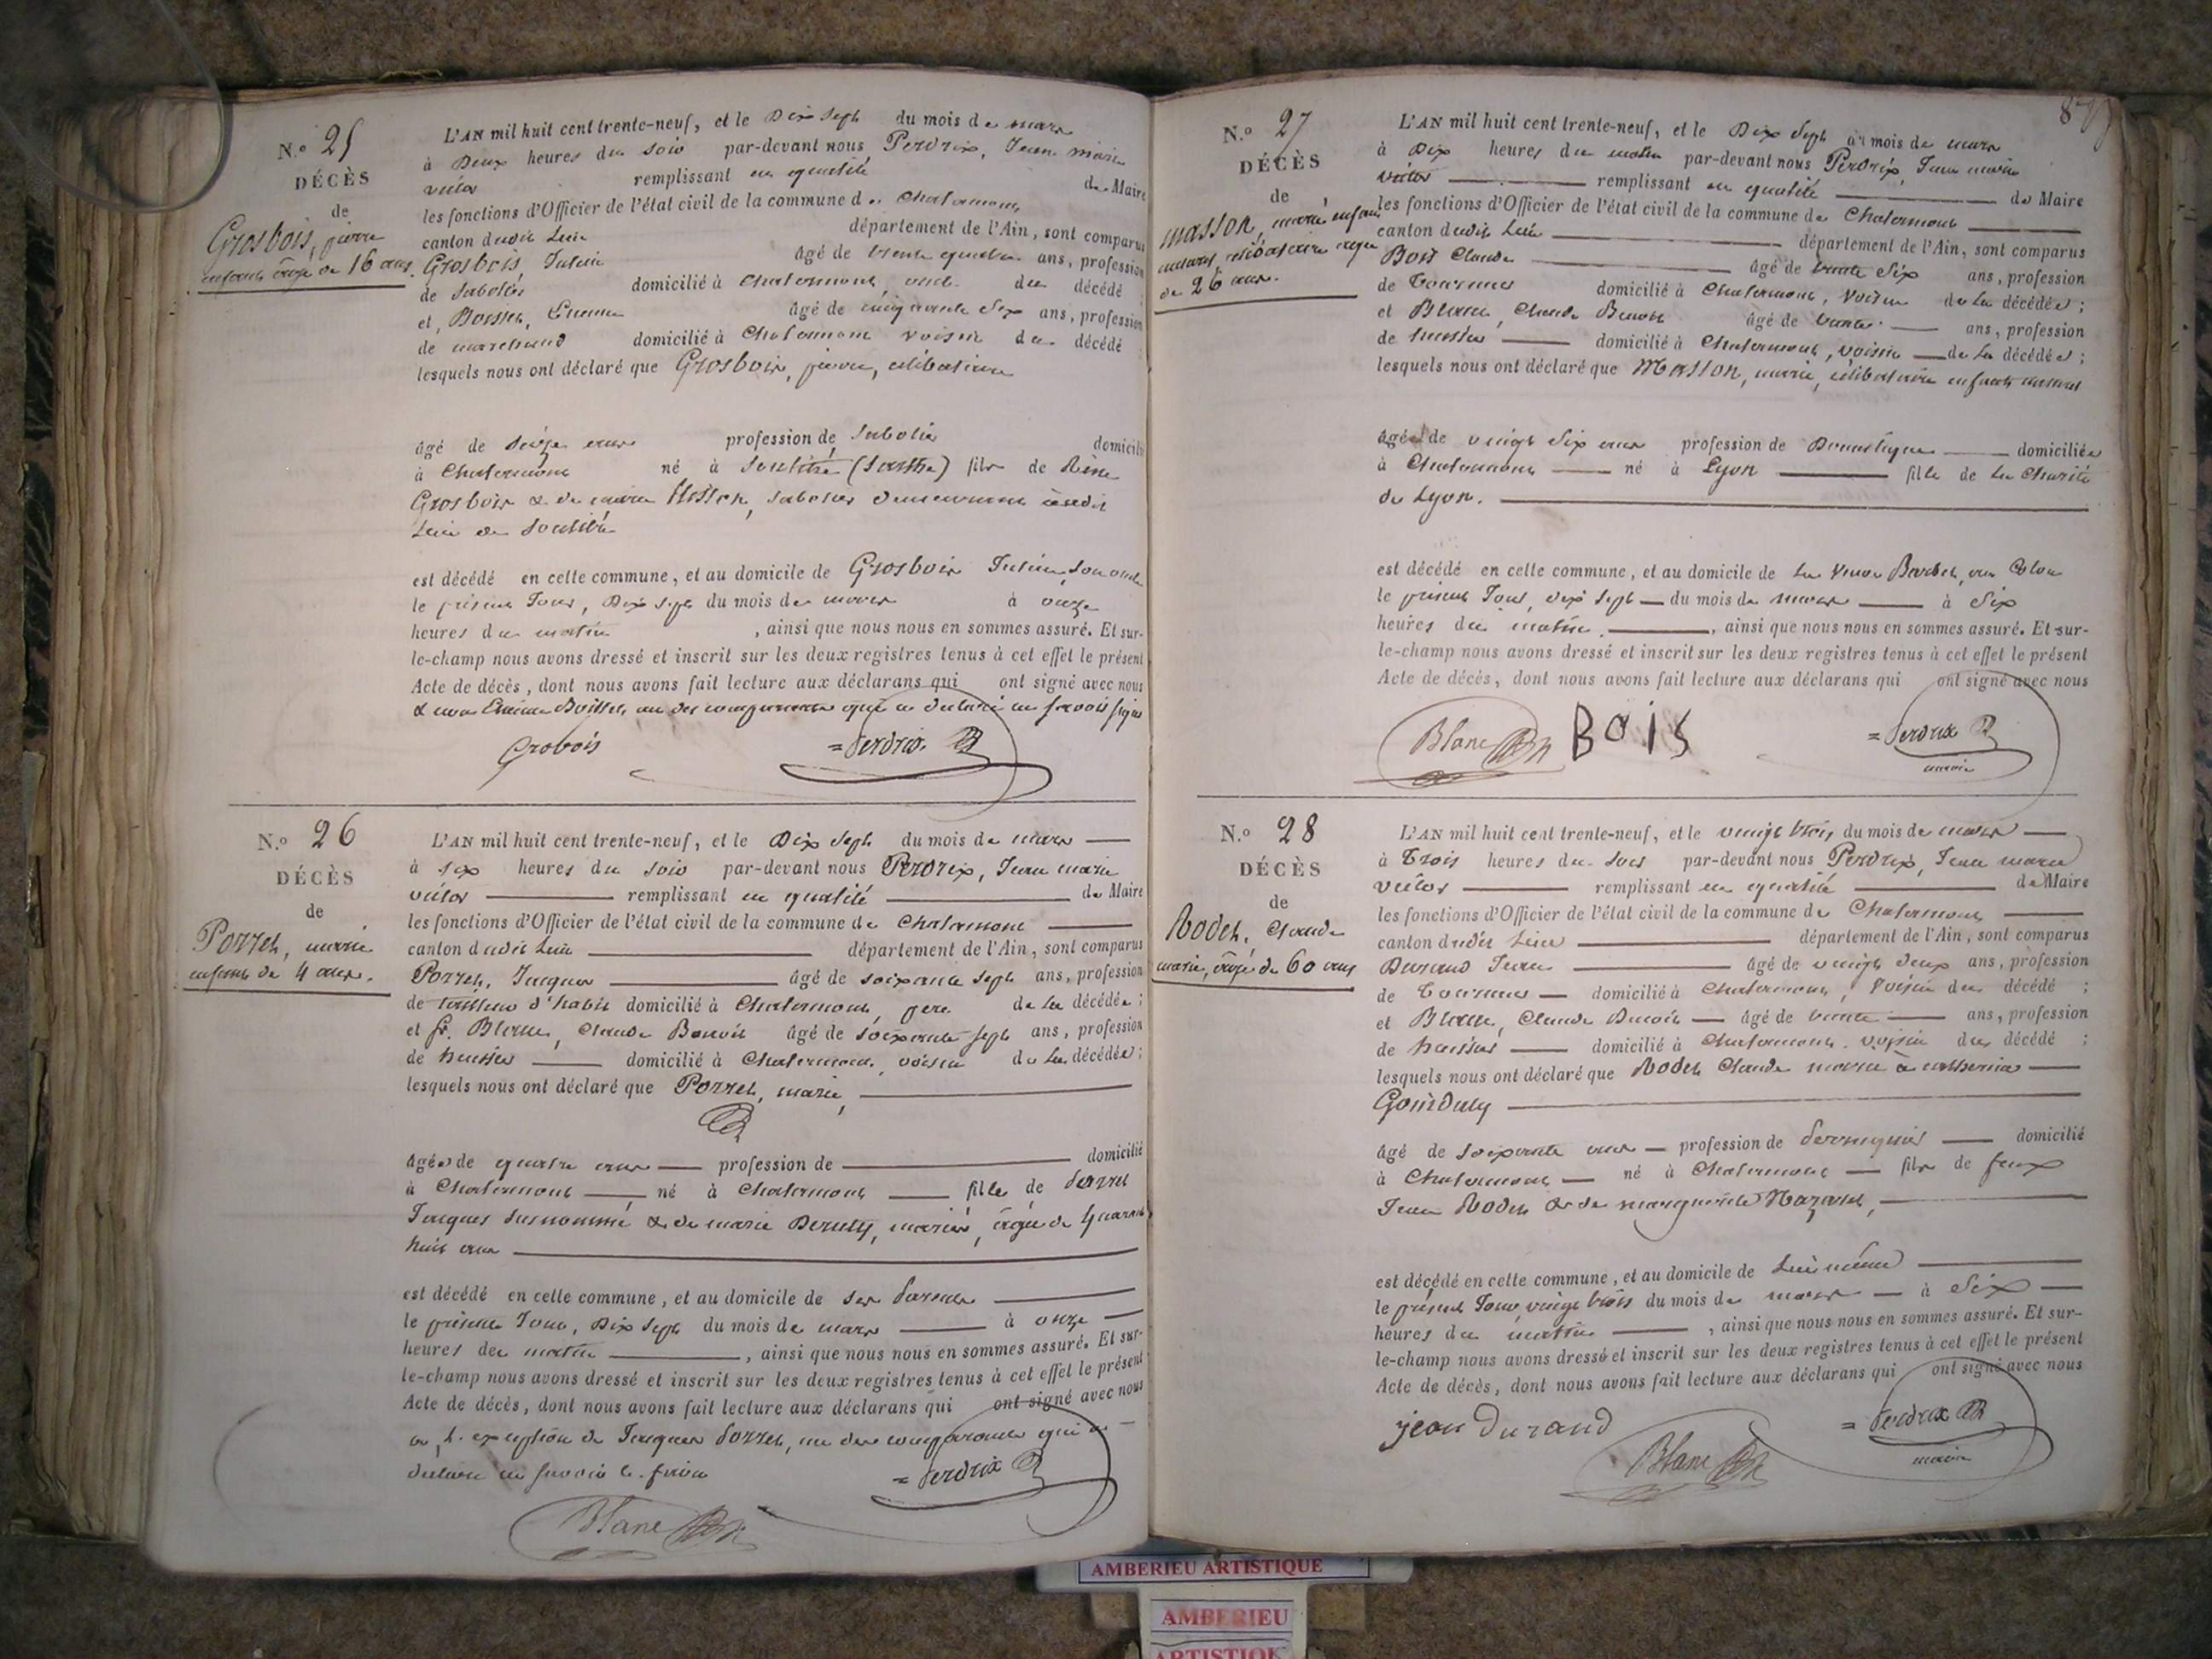 N.º 25
DÉCÈS
de
Grosbois, pierre
enfant âgé de 16 ans.
L'AN mil huit cent trente-neuf, et le Dix Sept du mois de mars
à Deux heures du soir par-devant nous Perdrix, Jean marie
victor remplissant en qualité de Maire
les fonctions d'Officier de l'état civil de la commune de Chalamont
canton dudit Lieu département de l'Ain, sont comparus
Grosbois, Julien âgé de trente quatre ans, profession
de Sabotier domicilié à Chalamont, oncle du décédé ;
et, Boisset, Etienne âgé de cinquante Six ans, profession
de marchand domicilié à Chalamont voisin du décédé ;
lesquels nous ont déclaré que Grosbois, pierre, célibataire
âgé de Seize ans profession de Sabotier domicilié
à Chalamont né à Soulitré (Sarthe) fils de Réné
Grosbois & de marie, Sabotier demeurant audit
Lieu de Soulitré
est décédé en cette commune, et au domicile de Grosbois Julien, son oncle
le présent Jour, Dix Sept du mois de mars à onze
heures du matin, ainsi que nous nous en sommes assuré. Et sur-
le-champ nous avons dressé et inscrit sur les deux registres tenus à cet effet le présent
Acte de décès, dont nous avons fait lecture aux déclarans qui ont signé avec nous
& non Etienne Boisset, un des comparants que a déclaré ne savoir signer
Grobois = Perdrix
N.º 26
DÉCÈS
de
Porret, marie
enfant de 4 ans.
L'AN mil huit cent trente-neuf, et le Dix Sept du mois de mars
à six heures du soir par-devant nous Perdrix, Jean marie
victor remplissant en qualité de Maire
les fonctions d'Officier de l'état civil de la commune de Chalamont
canton dudit Lieu département de l'Ain, sont comparus
Porret, Jacques âgé de soixante sept ans, profession
de tailleur d'habit domicilié à Chalamont, père de la décédée ;
et Sr. Blanc, Claude Benoit âgé de soixante-sept ans, profession
de huissier domicilié à Chalamont, voisin de la décédée ;
lesquels nous ont déclaré que Porret, marie,
âgée de quatre ans profession de domicilié
à Chalamont né à Chalamont fille de Porret
Jacques susnommé & de marie, mariés, âgée de quarante
huit ans
est décédé en cette commune, et au domicile de ses Parents
le présent Jour, Dix Sept du mois de mars à onze
heures du matin, ainsi que nous nous en sommes assuré. Et sur-
le-champ nous avons dressé et inscrit sur les deux registres tenus à cet effet le présent
Acte de décès, dont nous avons fait lecture aux déclarans qui ont signé avec nous
à l'exception de Jacques Porret, un des comparants qui a
déclaré ne savoir le faire = Perdrix
Blanc
87
N.º 27
DÉCÈS
de
Masson, marie enfant
naturel, célibataire âgée
de 26 ans.
L'AN mil huit cent trente-neuf, et le Dix Sept du mois de mars
à Dix heures du matin par-devant nous Perdrix, Jean marie
victor remplissant en qualité de Maire
les fonctions d'Officier de l'état civil de la commune de Chalamont
canton dudit Lieu département de l'Ain, sont comparus
Bois Claude âgé de trente Six ans, profession
de Tourneur domicilié à Chalamont, voisin de la décédée ;
et Blanc, Claude Benoit âgé de trente ans, profession
de huissier domicilié à Chalamont, voisin de la décédée ;
lesquels nous ont déclaré que Masson, marie, célibataire enfant naturel
âgée de vingt Six ans profession de Domestique domiciliée
à Chalamont né à Lyon fille de La Charité
de Lyon.
est décédé en cette commune, et au domicile de La Veuve
le présent Jour, dix sept du mois de mars à Six
heures du matin, ainsi que nous nous en sommes assuré. Et sur-
le-champ nous avons dressé et inscrit sur les deux registres tenus à cet effet le présent
Acte de décès, dont nous avons fait lecture aux déclarans qui ont signé avec nous
Blanc BOIS = Perdrix
maire
N.º 28
DÉCÈS
de
Rodet, Claude
marié, âgé de 60 ans
L'AN mil huit cent trente-neuf, et le vingt trois du mois de mars
à Trois heures du soir par-devant nous Perdrix, Jean marie
victor remplissant en qualité de Maire
les fonctions d'Officier de l'état civil de la commune de Chalamont
canton dudit Lieu département de l'Ain, sont comparus
Durand Jean âgé de vingt deux ans, profession
de Tourneur domicilié à Chalamont, voisin du décédé ;
et Blanc, Claude Benoit âgé de trente ans, profession
de huissier domicilié à Chalamont voisin du décédé ;
lesquels nous ont déclaré que Rodet Claude marié à catherine
âgé de soixante ans profession de domicilié
à Chalamont né à Chalamont fils de feux
Jean Rodet & de marguerite
est décédé en cette commune, et au domicile de Lui même
le présent Jour vingt trois du mois de mars à Six
heures du matin, ainsi que nous nous en sommes assuré. Et sur-
le-champ nous avons dressé et inscrit sur les deux registres tenus à cet effet le présent
Acte de décès, dont nous avons fait lecture aux déclarans qui ont signé avec nous
jean Durand Blanc = Perdrix
maire
AMBERIEU ARTISTIQUE
AMBERIEU
ARTISTIQUE